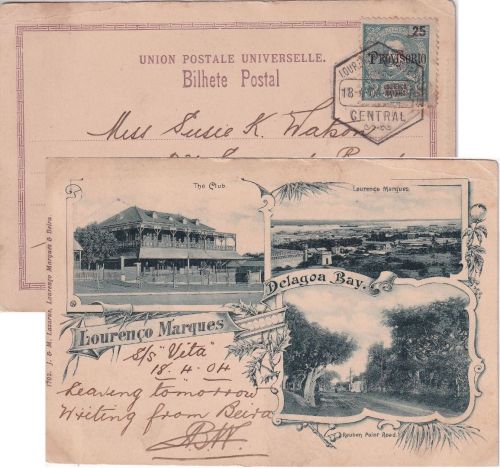 UNION POSTALE UNIVERSELLE.
Bilhete Postal
25
PROVISORIO
LOURENÇO
MARQUES
CENTRAL
Miss Susie K. Watson
The Club
Lourenço Marques.
Delagoa Bay.
Lourenço Marques
S/S "Vita"
18. 4. 04
Leaving tomorrow
Writing from Beira
BW.
Reuben Point Road.
1702. J. & M. Lazarus, Lourenço Marques & Beira.